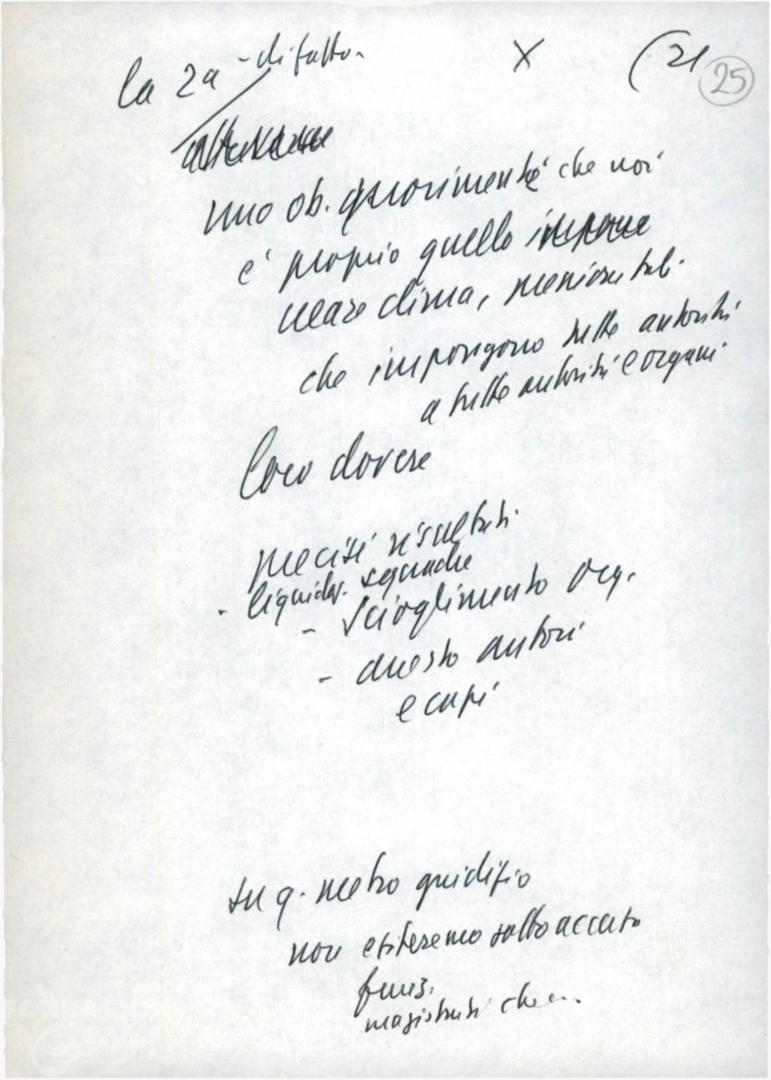 la 2a - di fatto.
X
(21
25
uno ob. che noi
e' proprio quello
creare clima, tali
che impongono tutte autorità
a tutte autorità e organi
loro dovere
precisi risultati
- liquidaz. squadre
- scioglimento org.
- arresto autori
e capi
su q. metro giudizio
non esiteremo sotto accusa
funz.
magistrati che ...